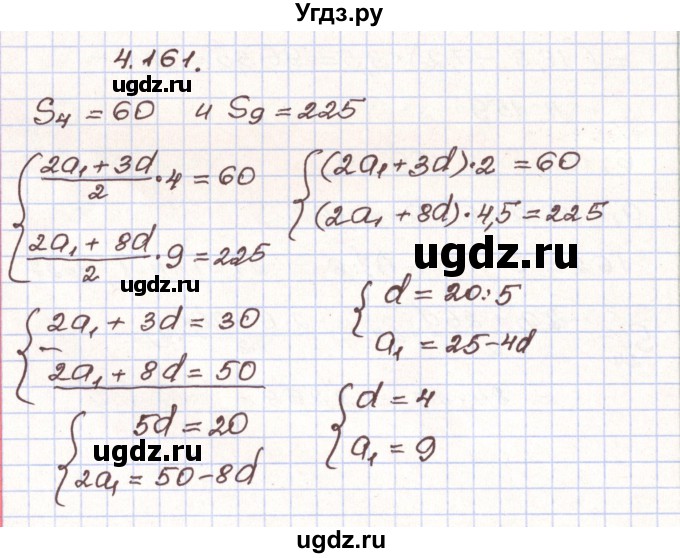 Угдз.ру
4.161.
ugdz.ru
S₄ = 60 и S₉ = 225
{ (2a₁ + 3d)/2 · 4 = 60
(2a₁ + 8d)/2 · 9 = 225
{ (2a₁ + 3d) · 2 = 60
(2a₁ + 8d) · 4,5 = 225
ugdz.ru
ugdz.ru
{ 2a₁ + 3d = 30
− 2a₁ + 8d = 50
{ d = 20:5
a₁ = 25 − 4d
{ 5d = 20
2a₁ = 50 − 8d
{ d = 4
a₁ = 9
ugdz.ru
ugdz.ru